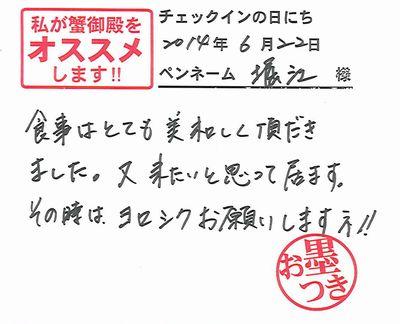 私が蟹御殿を
オススメ
します!!
チェックインの日にち
2014年6月22日
ペンネーム 堀江 様
食事はとても美味しく頂だき
ました。又来たいと思って居ます。
その時はヨロシクお願いしますネ!!
お墨
つき